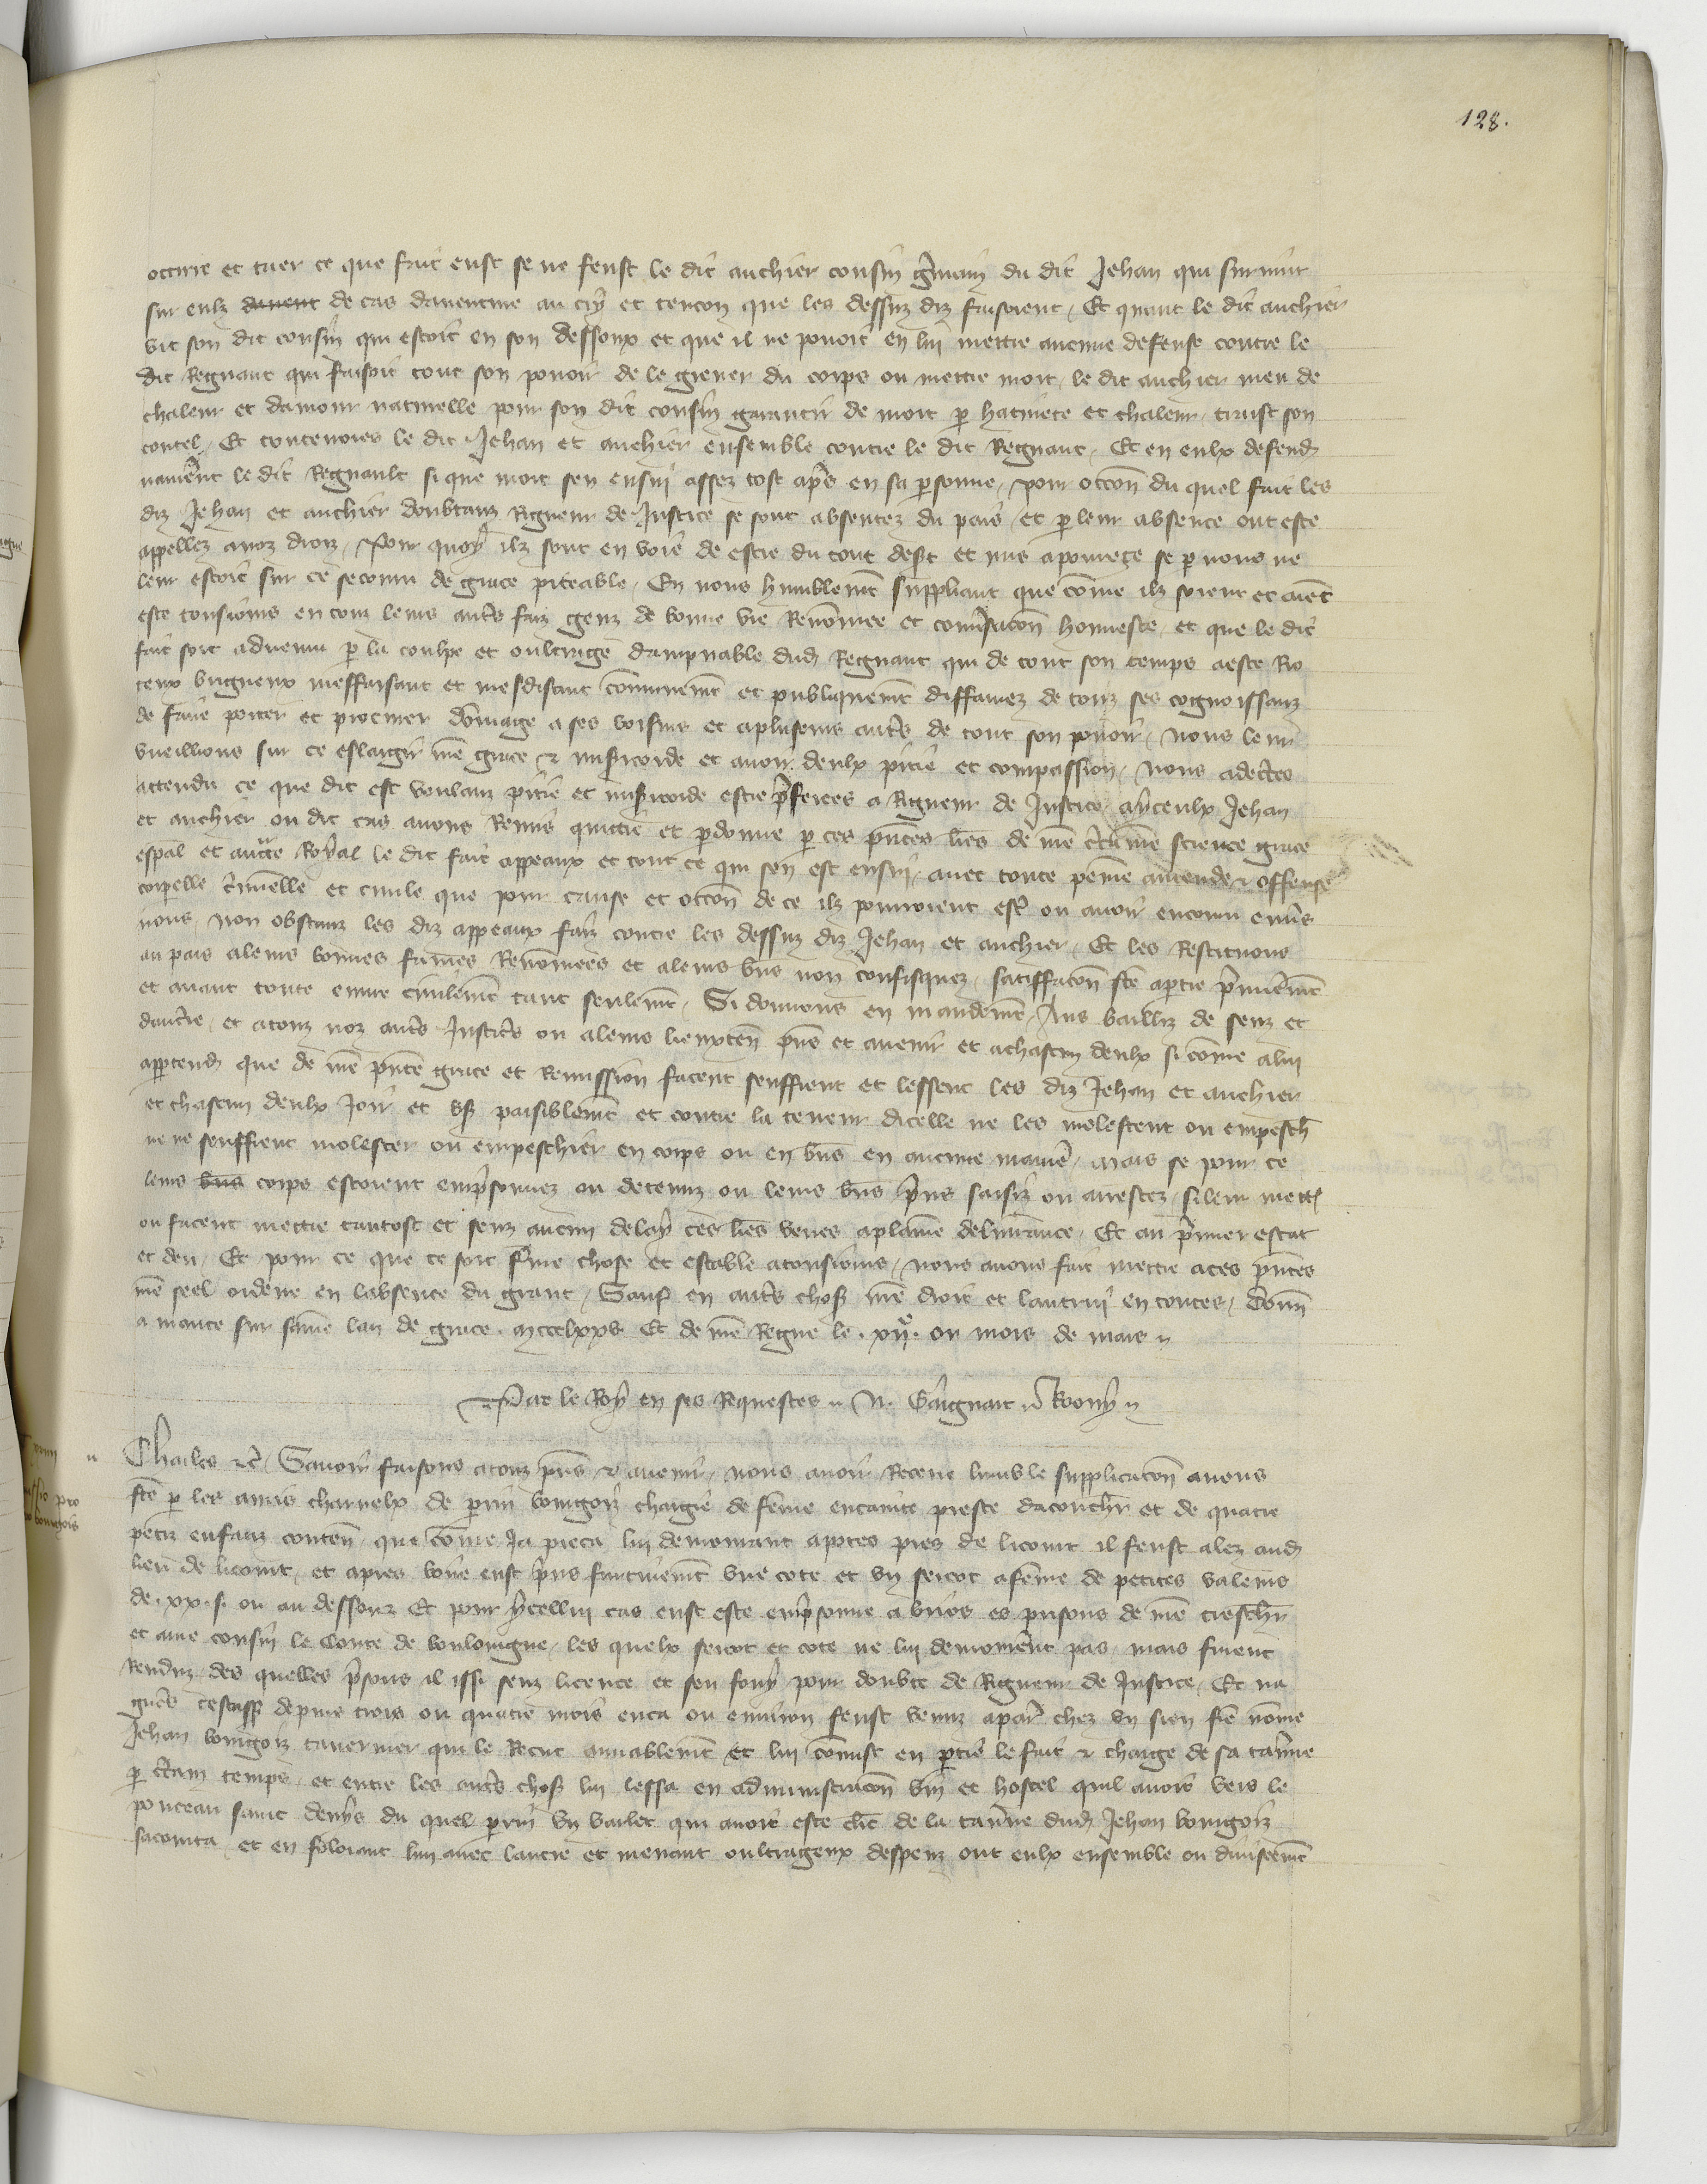 128.
occirre et tuer ce que fait eust se ne feust le dit anchier cousin gmain du dit Jehan qui survint
sur eulz davent de cas daventure au cry et tencon que les dessuz diz faisoient / Et quant le dit anchier
vit son dit cousin qui estoit en son dessoux et que il ne povoit en lui mettre aucune defense contre le
dit Regnaut qui faisoit tout son povoir de le grever du corps ou mettre mort / le dit anchier meu de
chaleur et damour naturelle pour son dit cousin garantir de mort p hativete et chaleur traist son
coutel / Et
le dit Jehan et anchier ensemble contre le dit Regnaut / Et en eulx defend
navrent le dit Regnault si que mort sen ensui assez tost aps en sa psonne / pour occon du quel fait les
diz Jehan et anchier doubtanz Rigueur de Justice se sont absentez du pais / et p leur absence ont este
appellez a noz droiz / Pour quoy ilz sont en voie de estre du tout dest et mis a povrete se p nous ne
leur estoit sur ce secouru de grace piteable / En nous humblemt suppliant que come ilz soient et aient
este tousiours en touz leurs auts faiz genz de bonne vie Renommee et convsacon honneste / et que le dit
fait soit advenu p la coulpe et oultrage dampnable dud Regnaut qui de tout son temps a este Rio
teux brigueux meffaisant et mesdisant communemt et publiquemt diffamez de touz ses cognoissanz
de faire porter et procurer domaige a ses voisins et a pluseurs auts de tout son povoir / Nous leur
vueillions sur ce eslargir nre grace et misicorde et avoir deulx pitie et compassion / Nous adcertes
attendu ce que dit est voulanz pitie et misicorde estre pferees a Rigueur de Justice / a yceulx Jehan
et anchier ou dit cas avons Remis quittie et pdonne p ces pntes lres de nre ctaine science grace
espal et auctte Royal le dit fait appeaux et tout ce qui sen est ensui / avec toute peine amende et offense
corpelle criminelle et civile que pour cause et occon de ce ilz pourroient est ou avoir encouru envs
nous / Non obstanz les diz appeaux faiz contre les dessuz diz Jehan et anchier / Et les Restituons
au pais a leurs bonnes fames Renommees et a leurs bns non confisquez / satiffacon fte a ptie pmieremt
et avant toute euvre civilemt tant seulemt / Si donnons en mandemt / Aus bailliz de senz et
daucrre / et a touz noz auts Justics ou a leurs lieuxten pns et avenir et a chascun deulx si come a lui
apptend que de nre pnte grace et Remission facent seuffrent et lessent les diz Jehan et anchier
et chascun deulx Joir et us paisiblemt et contre la teneur dicelle ne les molestent ou empesch
ne ne seuffrent molester ou empeschier en corps ou en bns en aucune manie / mais se pour ce
leurs bns corps estoient empsonnez ou detenuz ou leurs bns prins saisiz ou arrestez / si leur mett
ou facent mettre tantost et senz aucun delay ces lres veues a plaine delivrance / Et au pmier estat
et deu / Et pour ce que ce soit ferme chose et estable a tousiours / Nous avons fait mettre a ces pntes
nre seel ordene en labsence du grant / Sauf en auts chos nre droit et lautrui en toutes / donn
a mante sur saine lan de grace . mccclxxv Et de nre Regne le . xiie . ou mois de mars
Par le Roy en ses Requestes // N. Gaignart //
Charles etc / Savoir faisons a touz pns et avenir / Nous avoir Receue humble supplicacon a nous
fte p les amis charnelx de prin bourgois chargie de feme encainte preste dacouchr et de quatre
petiz enfanz conten / que come ja pieca lui demourant
pres de licourt il feust alez aud
lieu de licourt / et apres boire eust prins furtivemt une cote et un seurcot a feme de petites valeurs
de . xx . s. ou au dessouz Et pour ycellui cas eust este empsonne a
es prisons de nre treschr
et ame cousin le conte de bouloingne / les quelx seurcot et cote ne lui demourent pas / mais furent
Renduz / des quelles psons il issi senz licence et sen fouy pour doubte de Rigueur de Justice / Et na
gueres cestass depuis trois ou quatre mois enca ou environ feust venuz a paris chez un sien fre nome
Jehan bourgois tavernier qui le Recut amiablemt et lui comist en ptie le fait et charge de sa taverne
p ctain temps / et entre les auts chos lui lessa en administracon vin et hostel quil avoit vers le
ponceau saint denys du quel prin un varlet qui avoit este clerc de la taverne dud Jehan bourgois
sacointa / et en foloiant lun avec lautre et menant oultrageux despenz ont eulx ensemble ou diviseemt